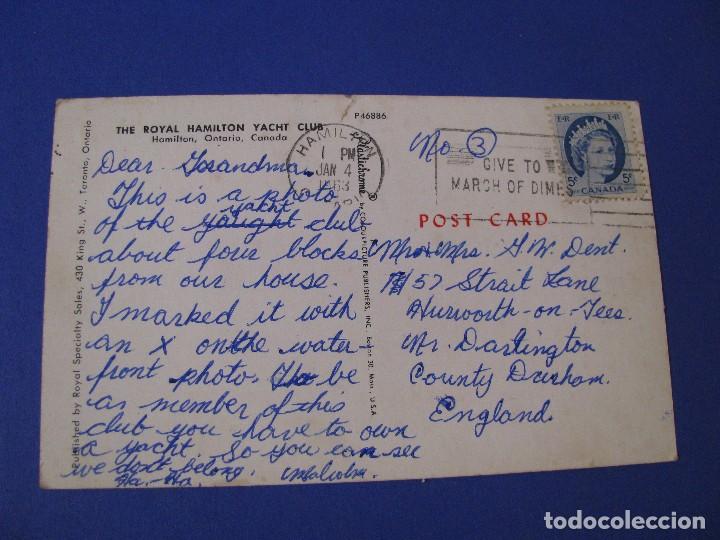 THE ROYAL HAMILTON YACHT CLUB
Hamilton, Ontario, Canada
P46886
Dear Grandma.
This is a photo
yacht
of the yaught club
about four blocks
from our house.
I marked it with
an X on the water-
front photo. To be
as member of this
club you have to own
a yacht. So you can see
we don't belong.
Ha. Ha. Malcolm.
Published by Royal Specialty Sales, 430 King St., W., Toronto, Ontario
Plastichrome ®
by COLOURPICTURE PUBLISHERS, INC., Boston 30, Mass., U.S.A.
HAMILTON
1 PM
JAN 4
1963
GIVE TO
MARCH OF DIMES
E II R E II R
5¢ 5¢
CANADA
No. 3
POST CARD
Mr & Mrs. G. W. Dent.
57 Strait Lane
Hurworth-on-Tees.
Nr. Darlington
County Durham.
England.
todocoleccion
todocoleccion.net